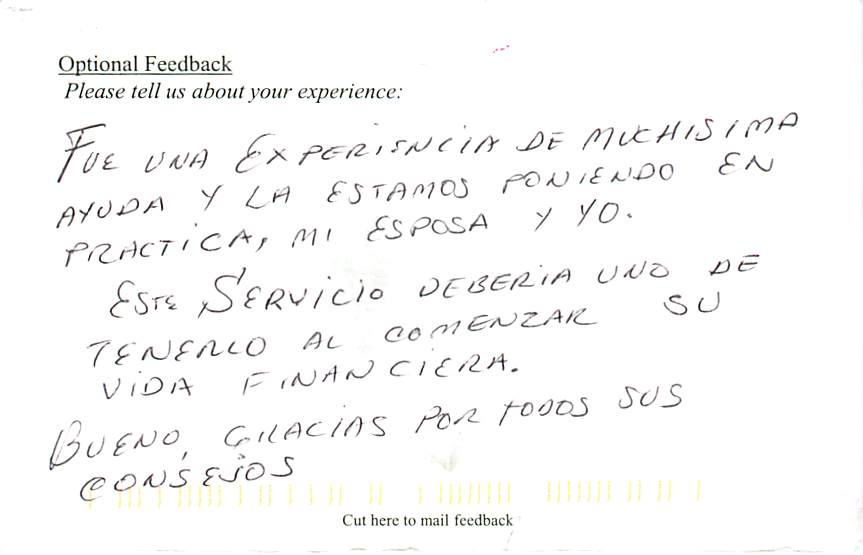 Optional Feedback
Please tell us about your experience:
FUE UNA EXPERISNCIA DE MUCHISIMA
AYUDA Y LA ESTAMOS PONIENDO EN
PRACTICA, MI ESPOSA Y YO.
ESTE SERVICIO DEBERIA UNO DE
TENERLO AL COMENZAR SU
VIDA FINANCIERA.
BUENO, GRACIAS POR TODOS SUS
CONSEJOS
Cut here to mail feedback